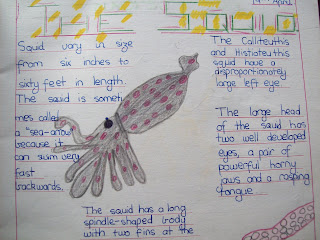 THE SQUID
April
Squid vary in size
from six inches to
sixty feet in length.
The squid is someti
mes called
a "sea-arrow"
because it
can swim very
fast
backwards.
The Calliteuthis
and Histioteuthis
squid have a
disproportionately
large left eye.
The large head
of the squid has
two well developed
eyes, a pair of
powerful horny
jaws and a rasping
tongue
The squid has a long
spindle-shaped body
with two fins at the